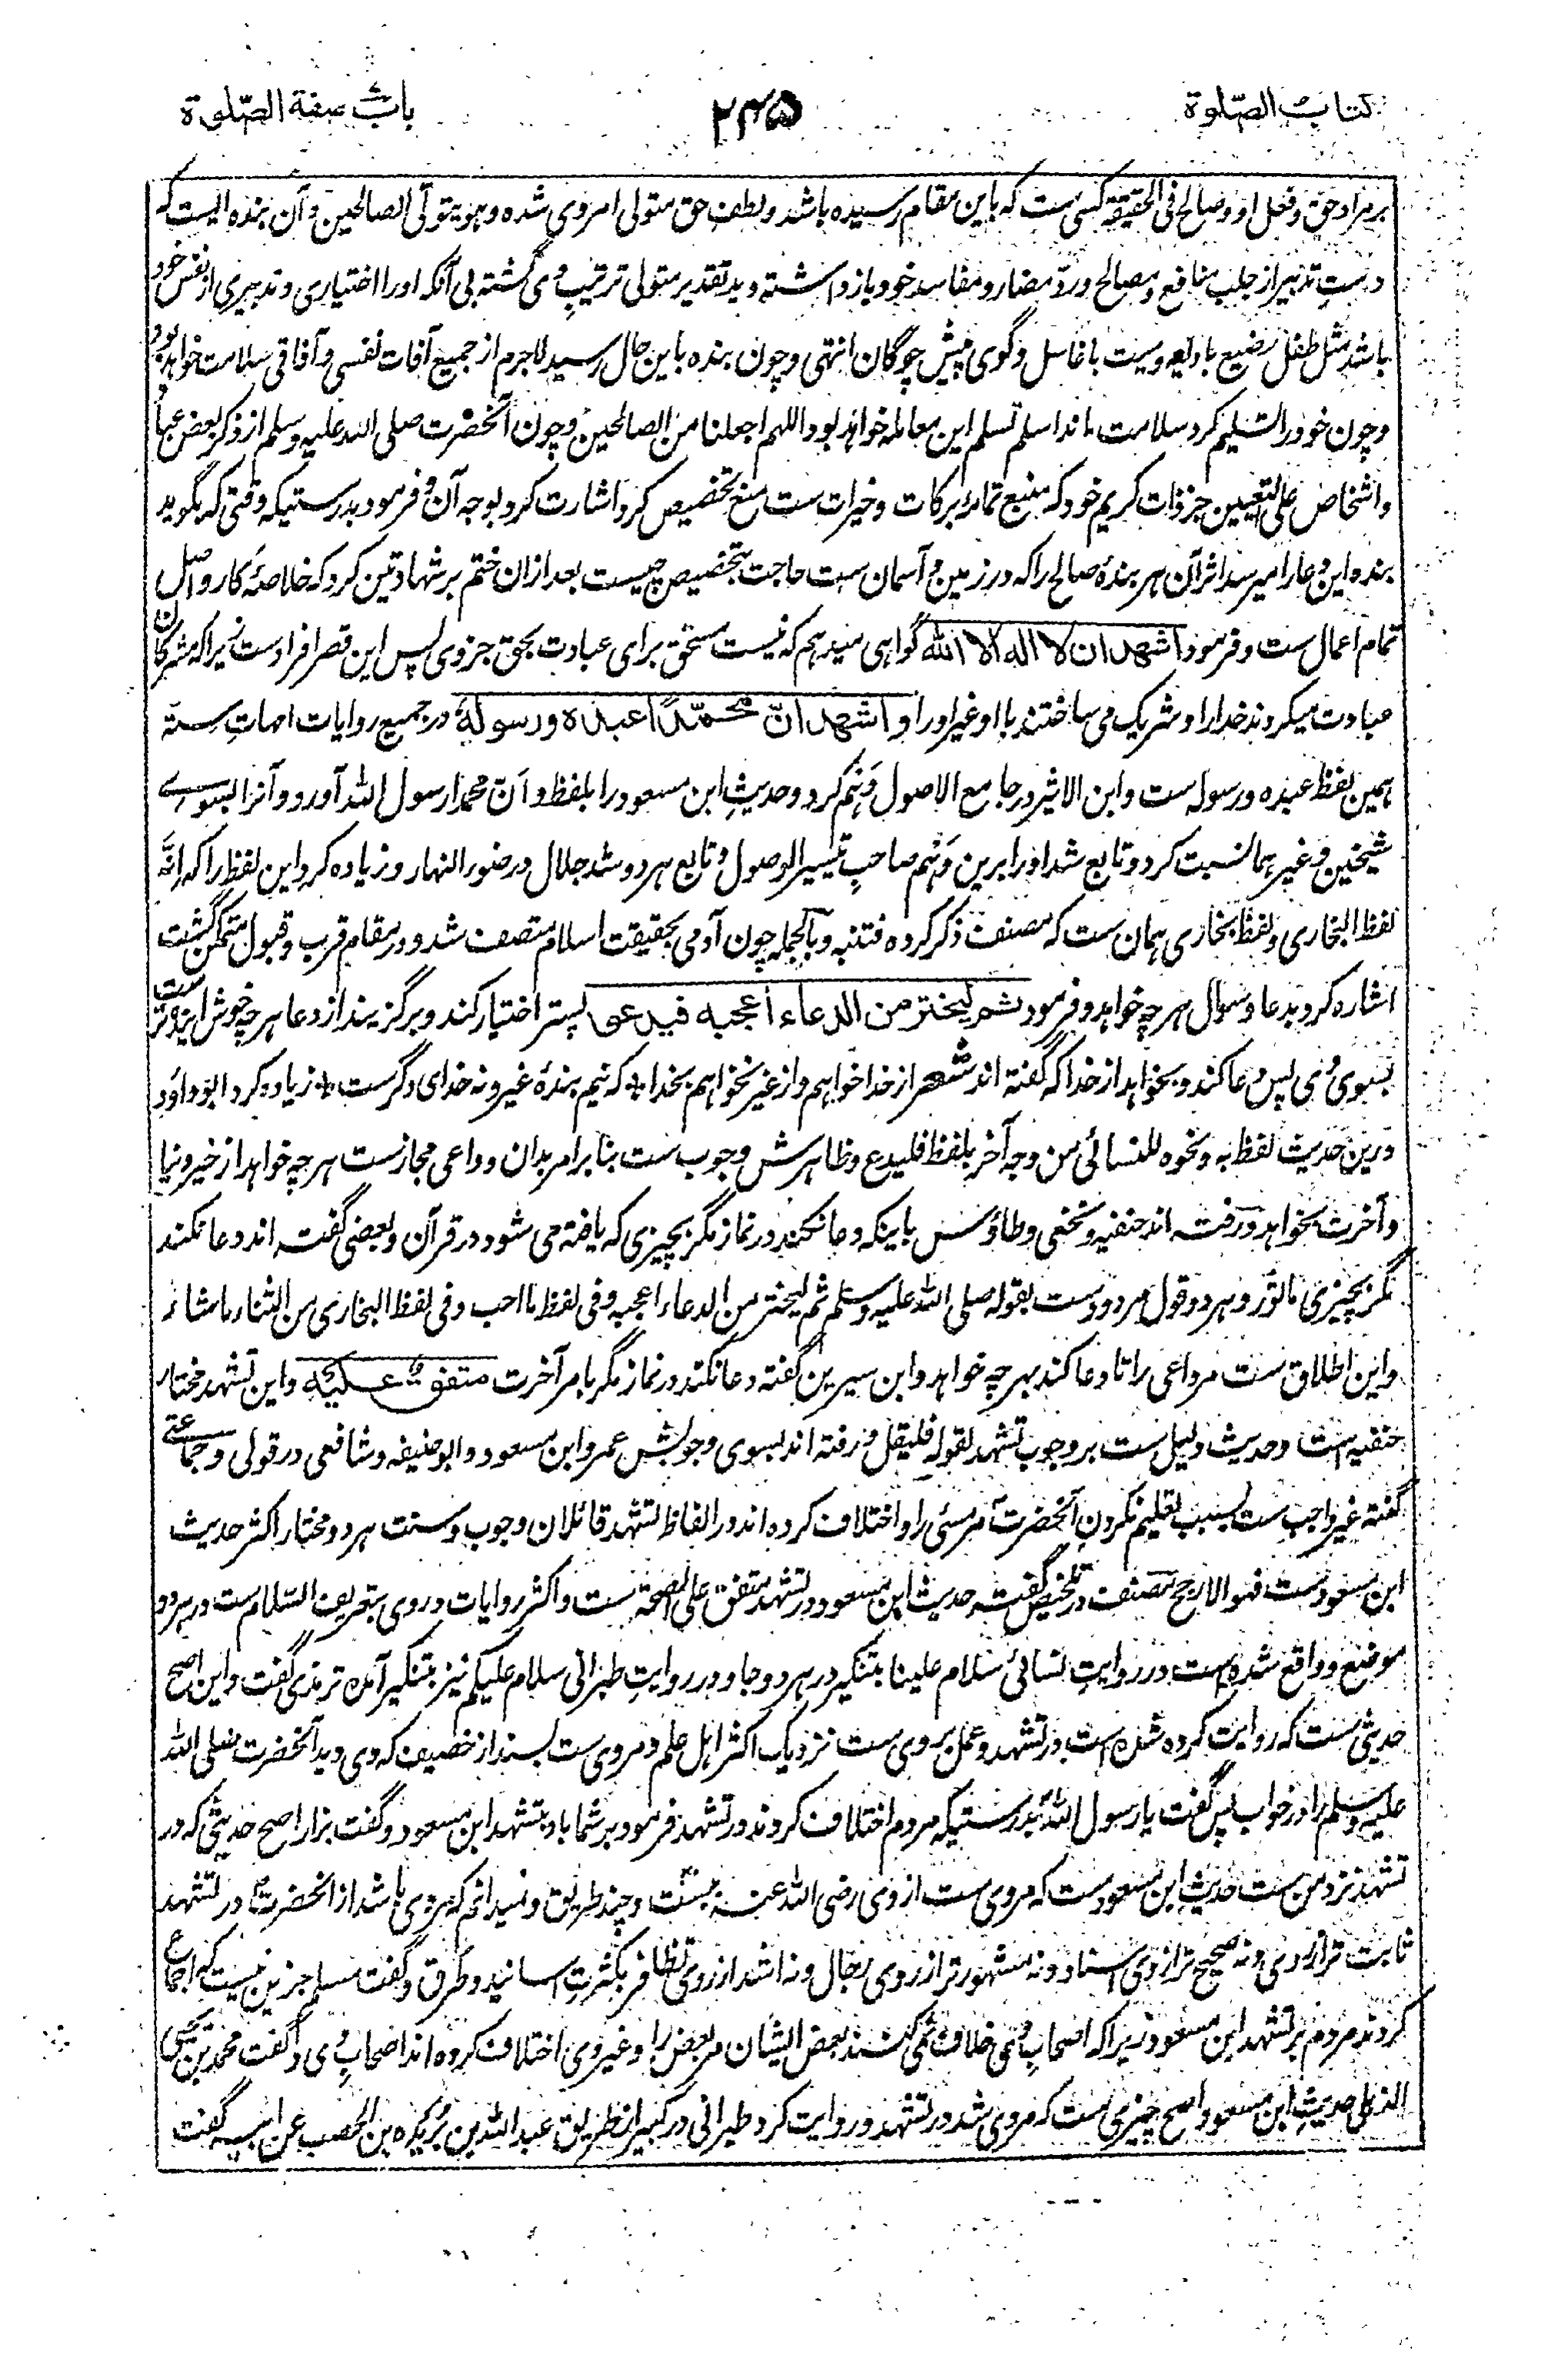 کتاب الصّلوة
۲۴۵
باب صفة الصّلوة
بر مراد حق و فعل او و صالح فی الحقیقة کسی ست که باین مقام رسیده باشد و لطف حق متولی امر وی شده و هو یتولّی الصالحین و آن بنده ایست که
دست تدبیر از جلب منافع و مصالح و ردّ مضار و مفاسد خود باز داشته و ید تقدیر متولی ترتیب وی گشته بی آنکه او را اختیاری و تدبیری از نفس خود
باشد مثل طفل رضیع با دایه و میت با غاسل و گوی پیش چوگان انتهی و چون بنده باین حال رسید لاجرم از جمیع آفات نفسی و آفاقی سلامت خواهد بود
و چون خود را تسلیم کرد سلامت ماند اسلم تسلم این معامله خواهد بود اللهم اجعلنا من الصالحین و چون آنحضرت صلی الله علیه وسلم از ذکر بعض عباد
و اشخاص علی التعیین جز ذات کریم خود که منبع تمامه برکات و خیرات ست منع تخصیص کرد اشارت کرد بوجه آن و فرمود بدرستیکه وقتی که بگوید
بنده این دعا را میرسد اثر آن هر بندهٔ صالح را که در زمین و آسمان ست حاجت بتخصیص چیست بعد ازان ختم بر شهادتین کرد که خلاصهٔ کار و اصل
تمام اعمال ست و فرمود اشهد ان لا اله الا الله گواهی میدهم که نیست مستحق برای عبادت بحق جز وی پس این قصر افرادست زیرا که مشرکان
عبادت میکردند خدا را و شریک می ساختند با او غیر او را و اشهد انّ محمّدًا عبده ورسوله در جمیع روایات امهات ستّه
همین لفظ عبده و رسوله ست و ابن الاثیر در جامع الاصول وَهم کرد و حدیثِ ابن مسعود را بلفظ و اَنّ محمدا رسول الله آورد و آنرا بسوے
شیخین و غیرهما نسبت کرد و تابع شد او را برین وَهم صاحبِ تیسیر الوصول و تابع هر دو شد جلال در ضوء النهار و زیاده کرد این لفظ را که انّه
لفظ البخاری و لفظ بخاری همان ست که مصنف ذکر کرده فتنبه و بالجمله چون آدمی بحقیقت اسلام متصف شد و در مقام قرب و قبول متمکن گشت
اشاره کرد بدعا و سوال هر چه خواهد و فرمود ثم لیختر من الدعاء أعجبه فیدعو پستر اختیار کند و برگزیند از دعا هر چه خوش آینده تر ست
بسوی وی پس دعا کند و بخواهد از خدا که گفته اند شعر از خدا خواهم و از غیر نخواهم بخدا * که نیم بندهٔ غیر و نه خدای دگرست * زیاده کرد ابو داود
درین حدیث لفظ به و نحوه للنسائی من وجه آخر بلفظ فلیدع و ظاهرش وجوب ست بنا بر امر بدان و داعی مجازست هر چه خواهد از خیر دنیا
و آخرت بخواهد و رفته اند حنفیه و نخعی و طاؤس باینکه دعا نکند در نماز مگر بچیزی که یافته می شود در قرآن و بعضی گفته اند دعا نکند
مگر بچیزی ماثور و هر دو قول مردودست بقوله صلی الله علیه وسلم ثم لیختر من الدعاء اعجبه و فی لفظ ما احب و فی لفظ البخاری من الثناء ما شاء
و این اطلاق ست مر داعی را تا دعا کند بهر چه خواهد و ابن سیرین گفته دعا نکند در نماز مگر بامر آخرت متفق علیه و این تشهد مختار
حنفیه است و حدیث دلیل ست بر وجوب تشهد لقوله فلیقل و رفته اند بسوی وجوبش عمر و ابن مسعود و ابو حنیفه و شافعی در قولی و جماعتے
گفته غیر واجب ست بسبب تعلیم نکردن آنحضرت مر مسئی را و اختلاف کرده اند در الفاظ تشهد قائلان وجوب و سنت هر دو و مختار اکثر حدیث
ابن مسعودست فهو الارجح مصنف در تلخیص گفته حدیث ابن مسعود در تشهد متفق علی الصحة ست و اکثر روایات در وی بتعریف السّلام ست در هر دو
موضع و واقع شده است در روایتِ نسائی سلام علینا بتنکیر در هر دو جا و در روایتِ طبرانی سلام علیکم نیز بتنکیر آمده ترمذی گفت و این اصح
حدیثی ست که روایت کرده شده است در تشهد و عمل بر وی ست نزدیک اکثر اهل علم و مروی ست بسند از خصیف که وی دید آنحضرت صلی الله
علیه وسلم را در خواب پس گفت یا رسول الله بدرستیکه مردم اختلاف کردند در تشهد فرمود بر شما باد بتشهد ابن مسعود و گفت بزار اصح حدیثی که در
تشهد نزد من ست حدیثِ ابن مسعودست که مروی ست از وی رضی الله عنه به بست و چند طریق و نمیدانم که مروی باشد از آنحضرت در تشهد
ثابت تر از وی و نه صحیح تر از روی اسناد و نه مشهورتر از روی رجال و نه اشد از روی تظافر بکثرتِ اسانید و طرق و گفت مسلم جز این نیست که اجماع
کردند مردم بر تشهد ابن مسعود زیرا که اصحابِ وی خلاف نمی کنند بعض ایشان مر بعض را و غیر وی اختلاف کرده اند اصحابِ وی و گفت محمد بن یحیی
الذهلی حدیثِ ابن مسعود اصح چیزی ست که مروی شد در تشهد و روایت کرد طبرانی در کبیر از طریق عبد الله بن بُرَیده بن الحصیب عن ابیه گفت